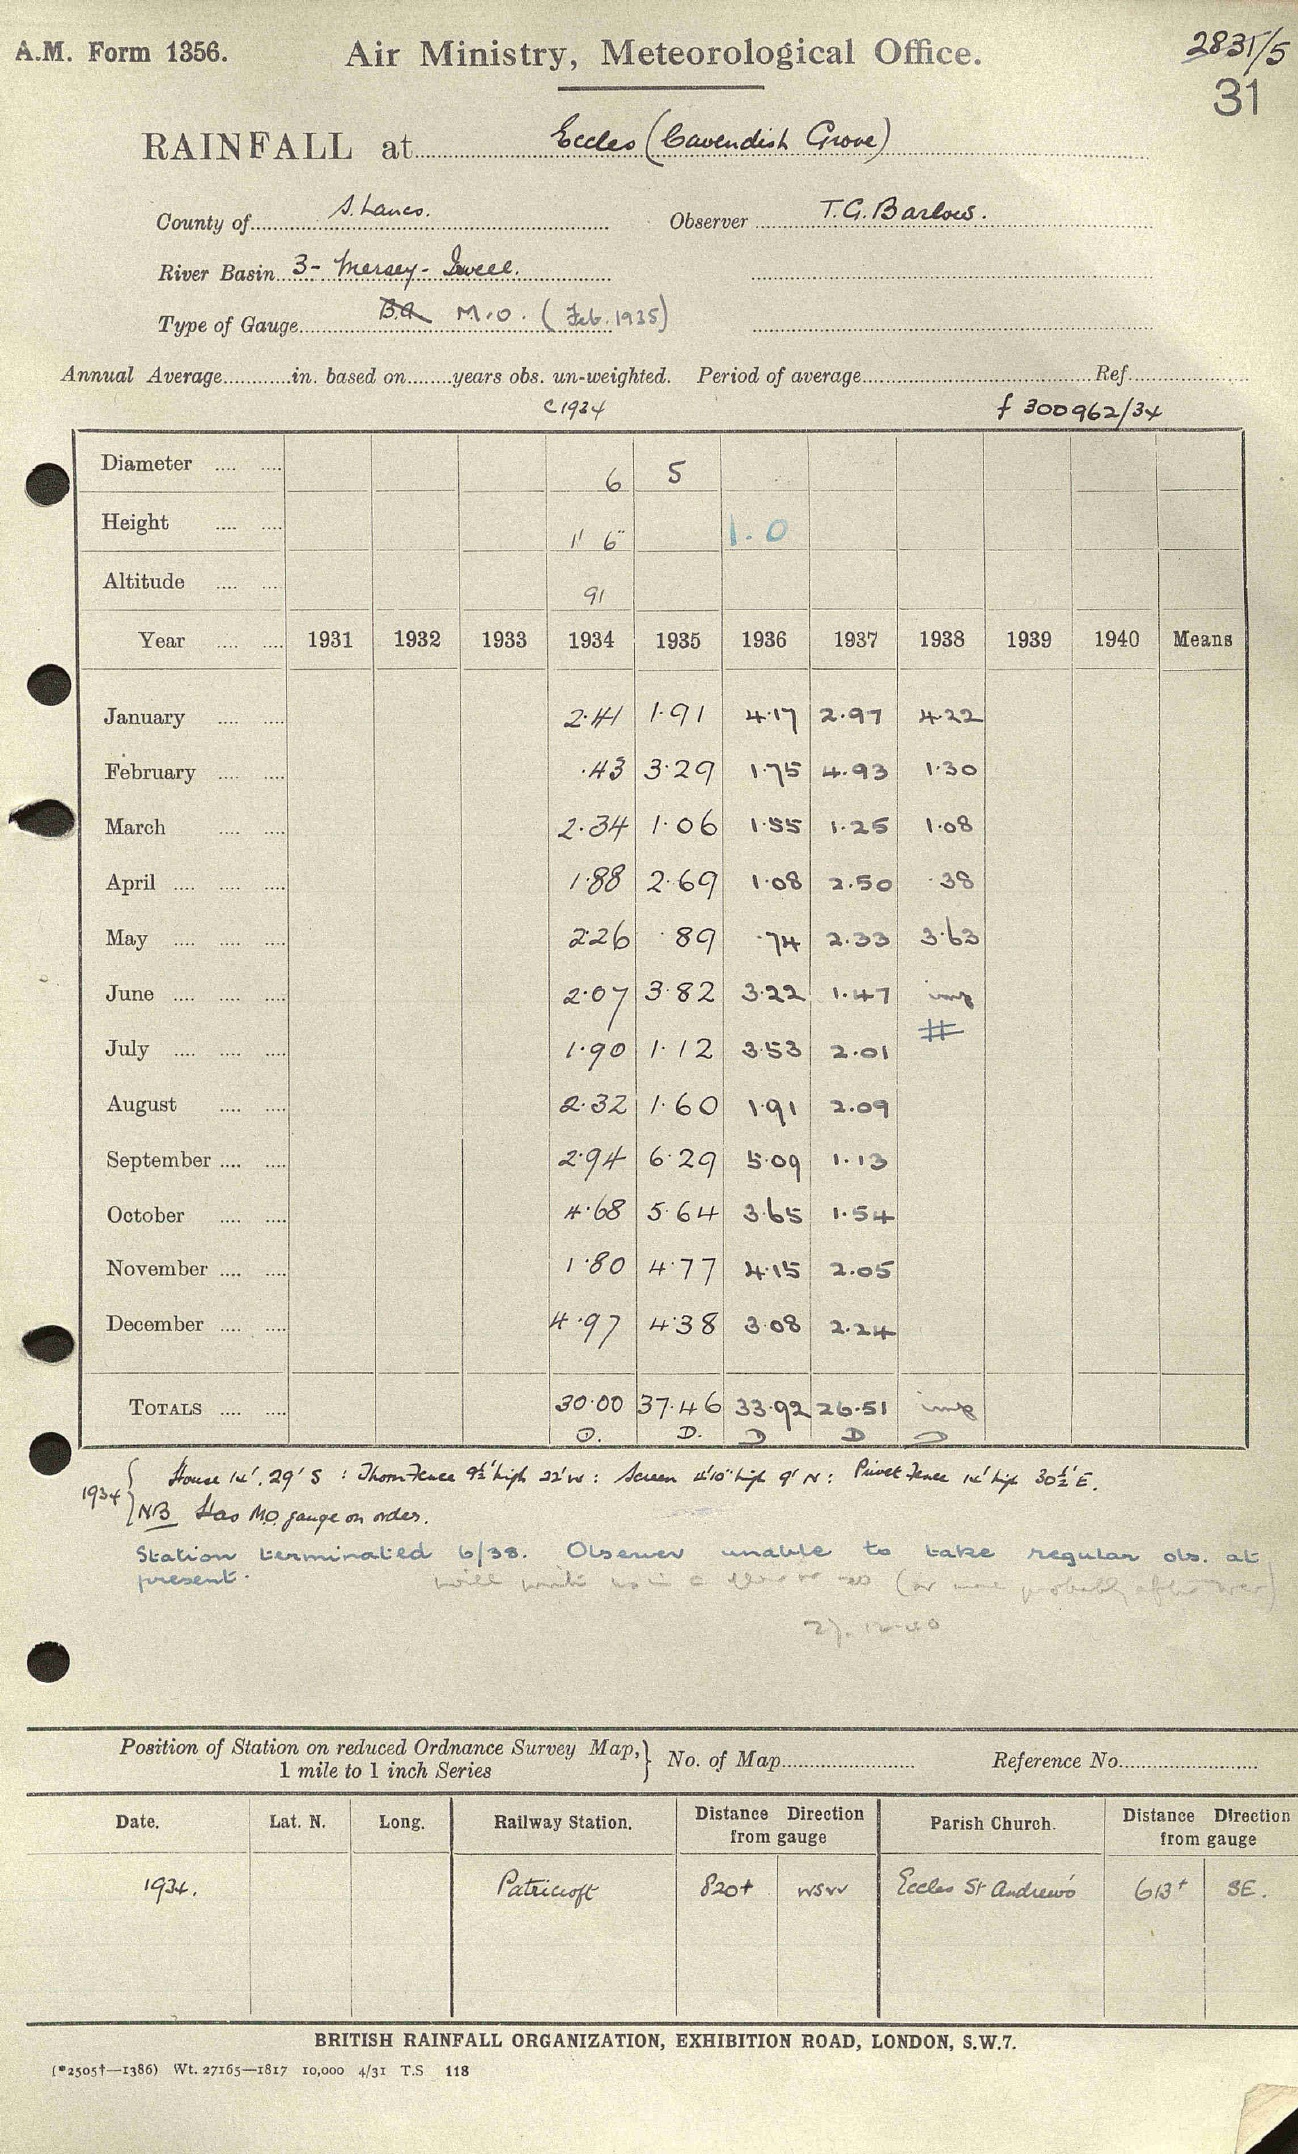 A.M. Form 1356. Air Ministry, Meteorological Office. 2835/5
31
RAINFALL at Eccles (Cavendish Grove)
County of S. Lancs. Observer T. G. Barlow.
River Basin 3- Mersey- Irwell.
Type of Gauge B.A M.O. (Feb. 1935)
Annual Average............in. based on........years obs. un-weighted. Period of average........ Ref........
c1934 f 300962/34
Diameter .... .... 6 5
Height .... .... 1' 6" 1.0
Altitude .... .... 91
Year .... .... 1931 1932 1933 1934 1935 1936 1937 1938 1939 1940 Means
January .... .... 2.41 1.91 4.17 2.97 4.22
February .... .... .43 3.29 1.75 4.93 1.30
March .... .... 2.34 1.06 1.55 1.25 1.08
April .... .... .... 1.88 2.69 1.08 2.50 .38
May .... .... .... 2.26 .89 .74 2.33 3.63
June .... .... .... 2.07 3.82 3.22 1.47 imp
July .... .... .... 1.90 1.12 3.53 2.01
August .... .... 2.32 1.60 1.91 2.09
September .... .... 2.94 6.29 5.09 1.13
October .... .... 4.68 5.64 3.65 1.54
November .... .... 1.80 4.77 4.15 2.05
December .... .... 4.97 4.38 3.08 2.24
TOTALS .... .... 30.00 37.46 33.92 26.51 imp
D. D. D D D
1934 { House 14', 29' S : Thorn Fence 9½' high 22' W : Screen 4'10" high 9' N : Privet Fence 14' high 30½' E.
NB Has M.O. gauge on order.
Station terminated 6/38. Observer unable to take regular obs. at
present. will write us in a year or so (or more probably after war)
27.12.40
Position of Station on reduced Ordnance Survey Map,} No. of Map........ Reference No........
1 mile to 1 inch Series
Date. Lat. N. Long. Railway Station. Distance Direction Parish Church. Distance Direction
from gauge from gauge
1934. Patricroft 820+ WSW Eccles St Andrew's 613+ SE.
BRITISH RAINFALL ORGANIZATION, EXHIBITION ROAD, LONDON, S.W.7.
(*2505†—1386) Wt. 27165—1817 10,000 4/31 T.S 118